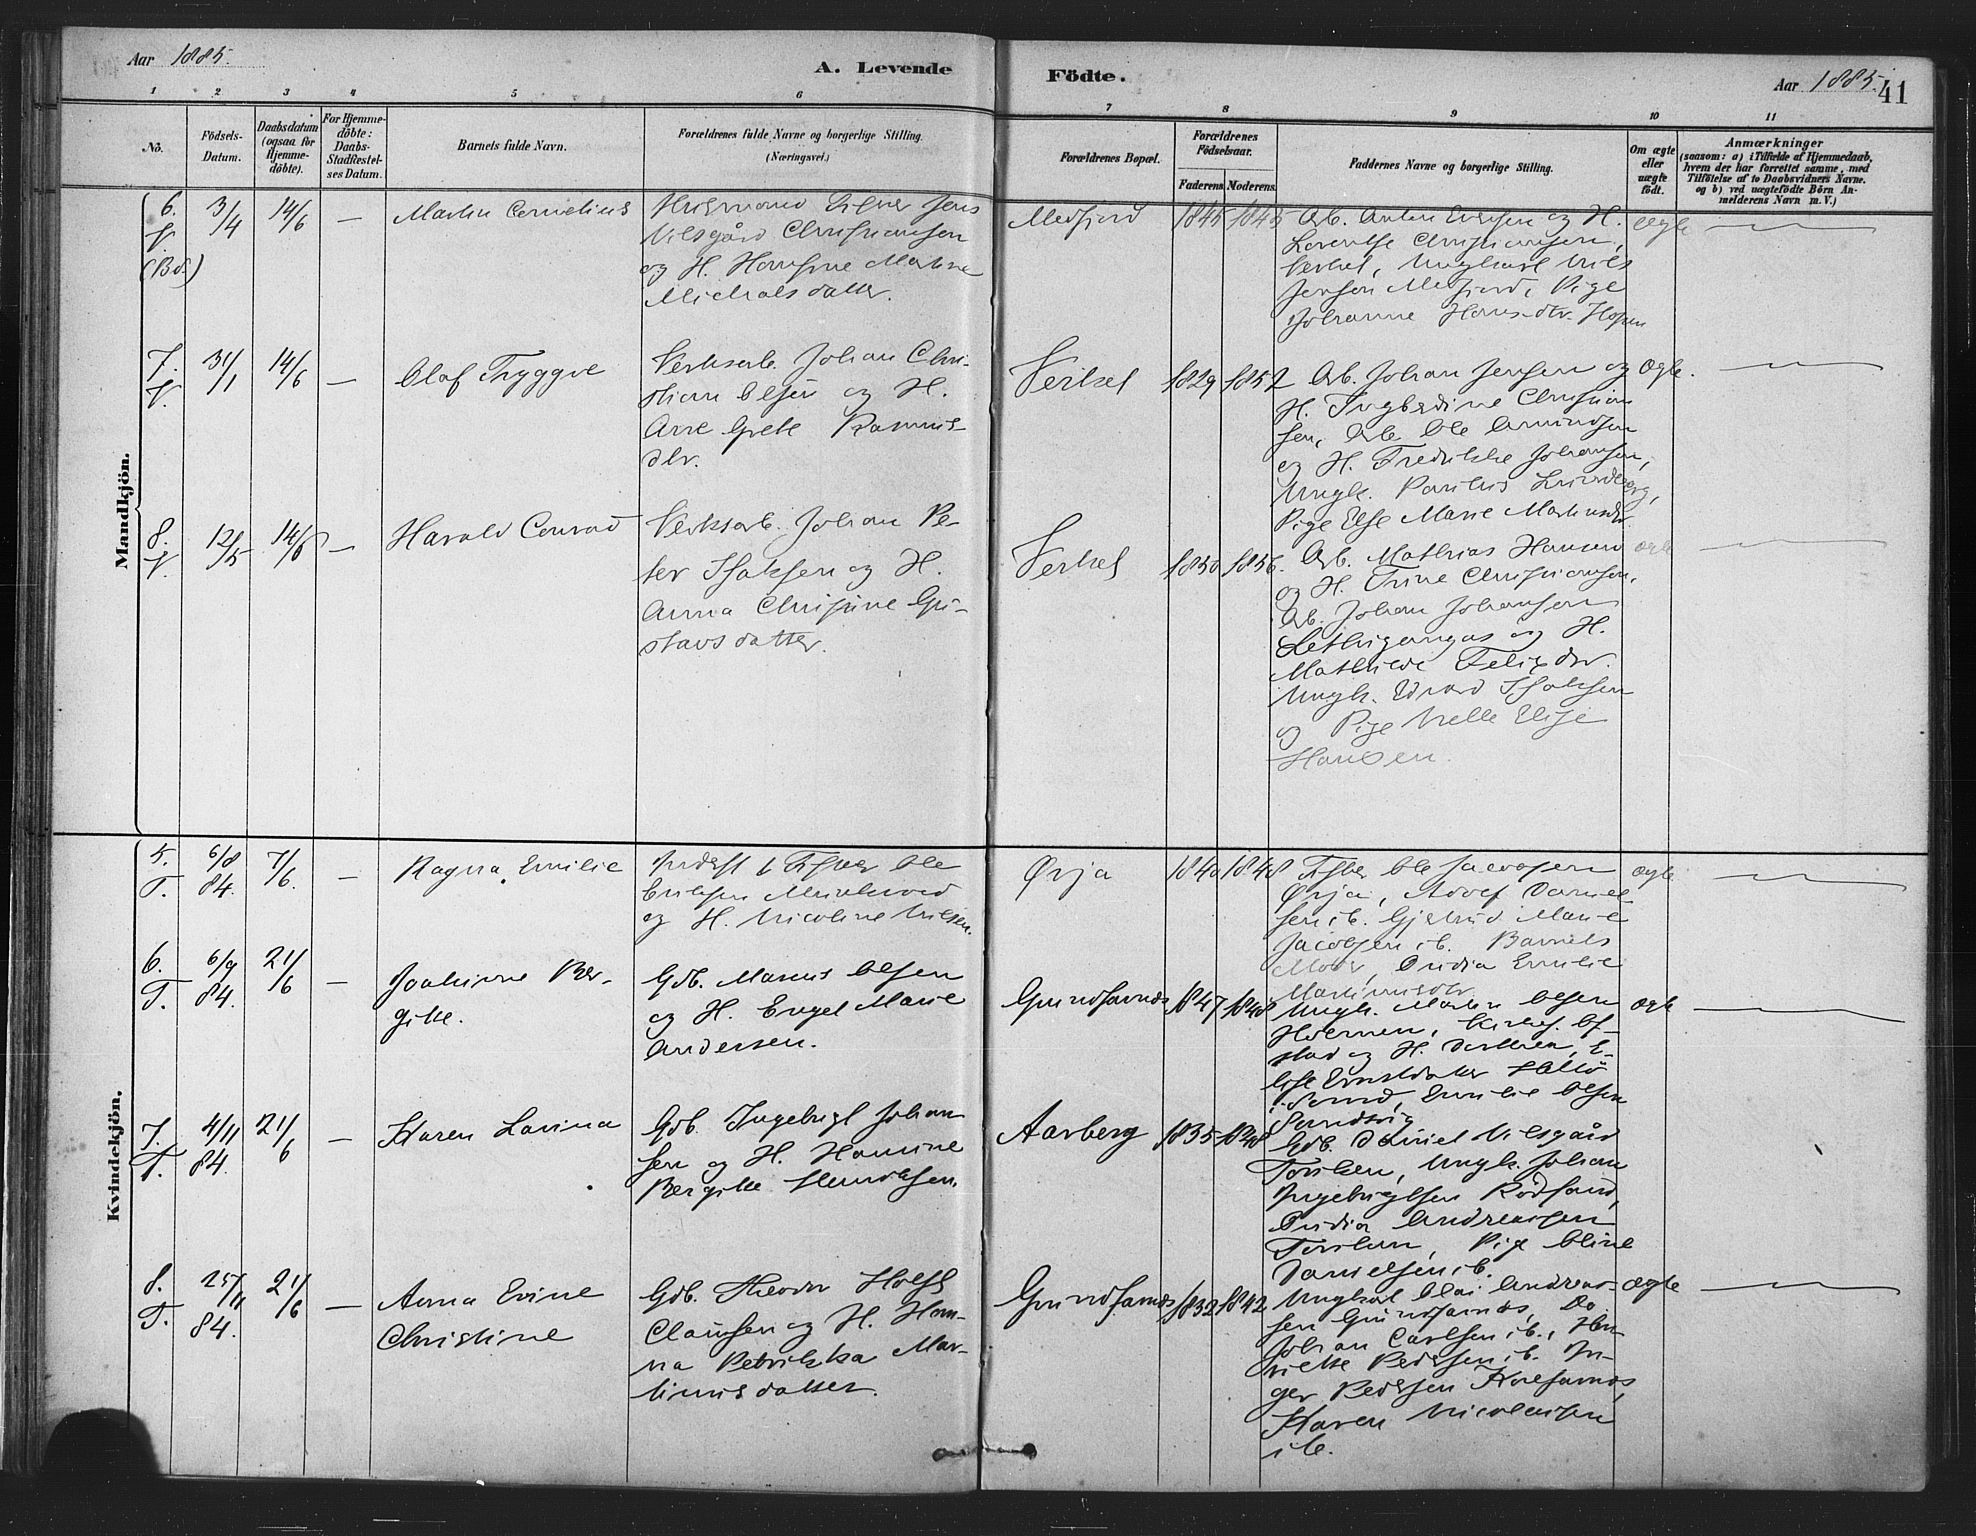 Aar 1885.
A. Levende
Födte.
Aar 1885.
41
1 2 3 4 5 6 7 8 9 10 11
No.
Födsels-
Datum.
Daabsdatum
(ogsaa for
Hjemme-
döbte).
For Hjemme-
döbte:
Daabs-
Stadfæstel-
ses Datum.
Barnets fulde Navn.
Forældrenes fulde Navne og borgerlige Stilling.
(Næringsvei.)
Forældrenes Bopæl.
Forældrenes
Födselsaar.
Faderens Moderens
Faddernes Navne og borgerlige Stilling.
Om ægte
eller
uægte
födt.
Anmærkninger
(saasom: a) i Tilfælde af Hjemmedaab,
hvem der har forrettet samme, med
Tilföielse af to Daabsvidners Navne.
og b) ved uægtefödte Börn An-
melderens Navn m. V.)
Mandkjön.
6.
3/4
14/6
—
Martin Cornelius
Husmand Fisker Jens
Nilsgård Christiansen
og H. Hansine Martine
Michalsdatter.
Medfjord
1845 1845
Arb. Anton Evensen og H.
Lorentse Christiansen,
Verket, Ungkarl Nils
Jensen Medfjord, Pige
Johanne Hans-dtr. Hopen
Ægte
7.
31/1
14/6
—
Olaf Tryggve
Verksarb. Johan Chri-
stian Olsen og H.
Ane Grete Rasmus-
dtr.
Verket
1829 1852
Arb. Johan Jensen og
H. Ingberdine Christian
sen, Arb. Ole Amundsen
og H. Fredrikke Johansen,
Ungk. Paulus
Pige Else Marie Martinsdtr.
Ægte.
8.
12/5
14/6
—
Harald Conrad
Verksarb. Johan Pe-
ter Isaksen og H.
Anna Christine Gu-
stavsdatter.
Verket
1850 1856.
Arb. Mathias Hansen
og H. Trine Christiansen.
Arb. Johan Johansen
og H.
Mathilde Felixdtr.
Ungk. Edvard Isaksen
og Pige Nelle Elise
Hansen.
ægte
Kvindekjön.
5.
T.
6/8
84.
7/6.
—
Ragna Emilie
Inderst & Fisker Ole
Eriksen
og H. Nicoline Nilsen.
Ørja
1840 1848
Fisker Ole Jacobsen
Ørja, Adolf Daniel
sen ib. Gjertrud Marie
Jacobsen ib. Barnets
Moder, Emilie
Martinusdtr.
ægte
6.
T.
6/9
84.
21/6
—
Joakime Ber-
gitte.
Gdb. Marius Olsen
og H. Engel Marie
Andersen.
Grundfarnæs
1847 1848
Ungk. Martin Olsen
og H. Dorthea E-
lise Ernstdatter
Emilie Olsen
ægte
7.
T.
4/11
84.
21/6
—
Karen Lavina
Gdb. Ingebrigt Johan
sen og H. Hansine
Bergitte Henriksen.
Aarberg
1835 1848
Gdb. Daniel Nilsgård
Torsken, Ungk. Johan
Ingebrigtsen Rödsand,
Andreassen
Torsken, Pige Oline
Danielsen ib.
8.
T.
25/11
84.
21/6
—
Anna Evine
Christine
Gdb. Theodor Holst
Clausen og H. Han-
na Petrikka Mar-
tinusdatter.
Grundfarnæs
1832 1842
Ungkarl Olai Andreas-
sen Grundfarnæs, Do
Johan Carlsen ib., Hen-
riette Pedersen ib. In-
ger Pedersen
Karen Nicolaisen
ib.
Ægte